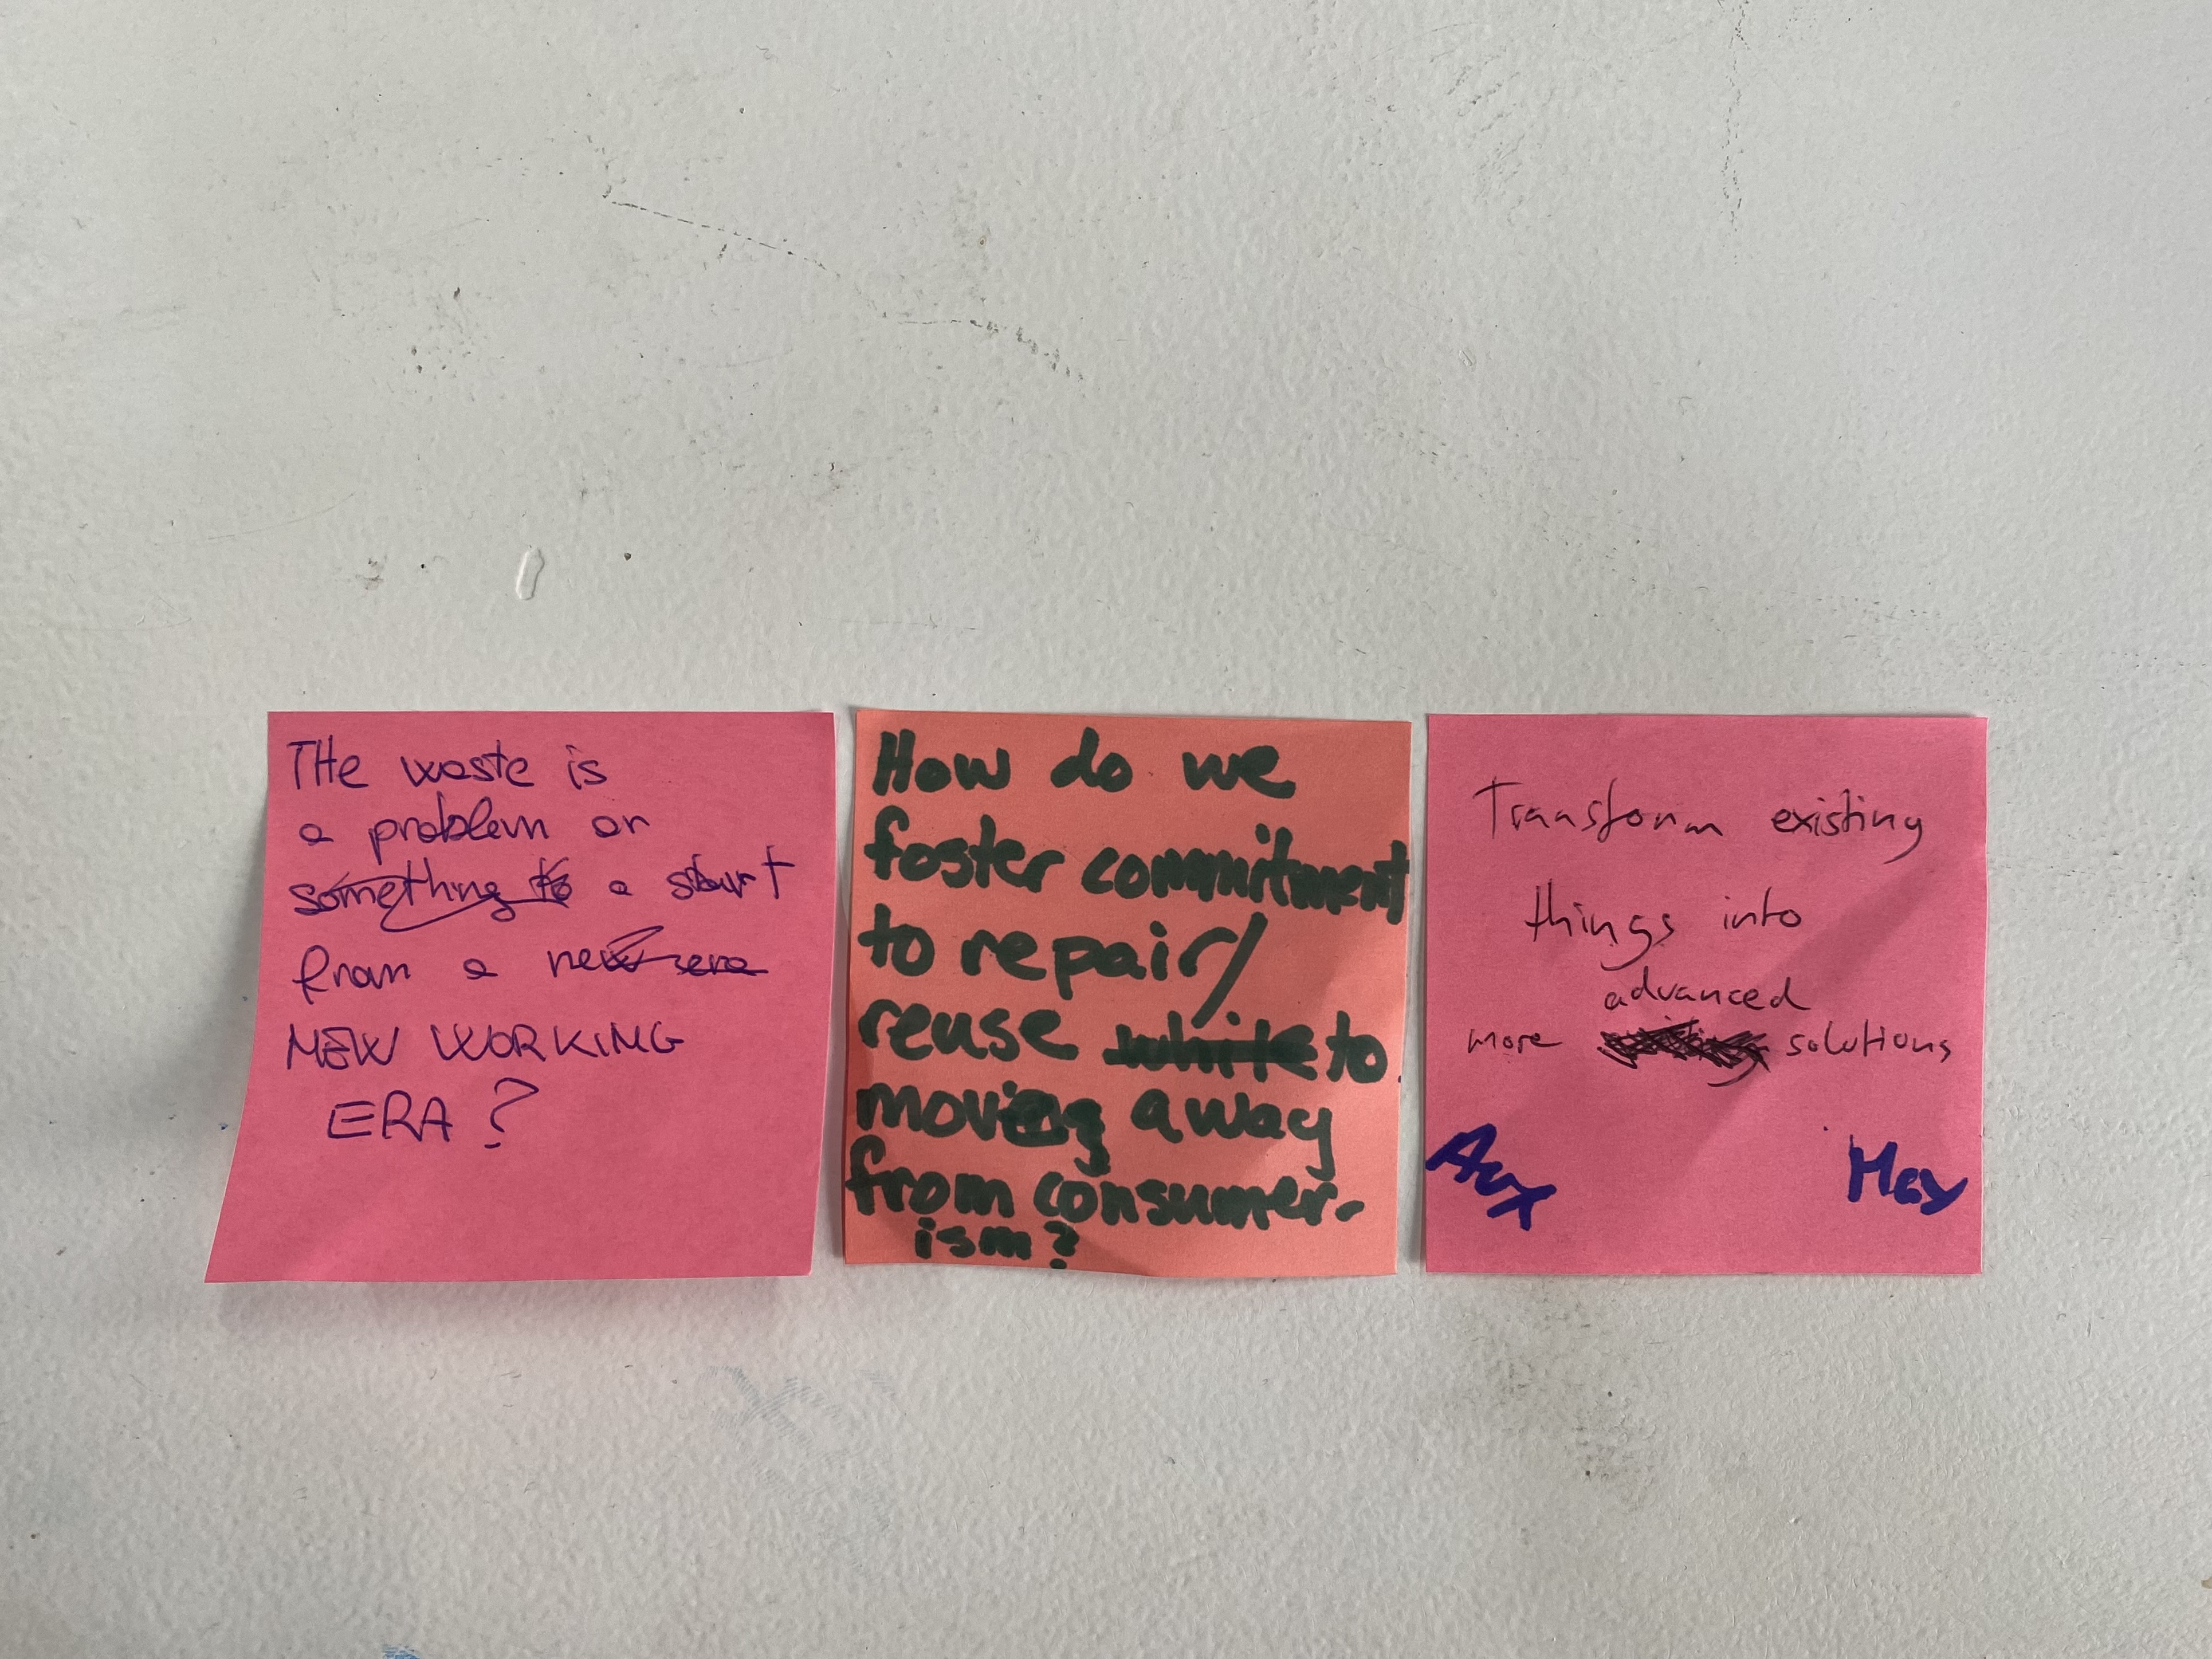 THe waste is
a problem or
something to a start
from a new era
NEW WORKING
ERA?
How do we
foster commitment
to repair/
reuse while to
moving away
from consumer-
ism?
Transform existing
things into
advanced
more existing solutions
May